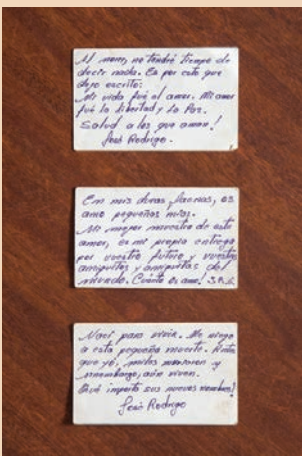 Al morir, no tendré tiempo de
decir nada. Es por esto que
dejo escrito:
Mi vida fué el amor. Mi amor
fué la libertad y la Paz.
Salud a los que aman!
José Rodrigo.
En mis duras faenas, os
amo pequeños míos.
Mi mejor muestra de este
amor, es mi propia entrega
por vuestro futuro y vuestros
amiguitos y amiguitas del
mundo. Cuánto os amo!
Nací para vivir. Me niego
a esta pequeña muerte. Antes
que yó, miles murieron y
sinembargo, aún viven.
Qué importa sus nuevos nombres!
José Rodrigo